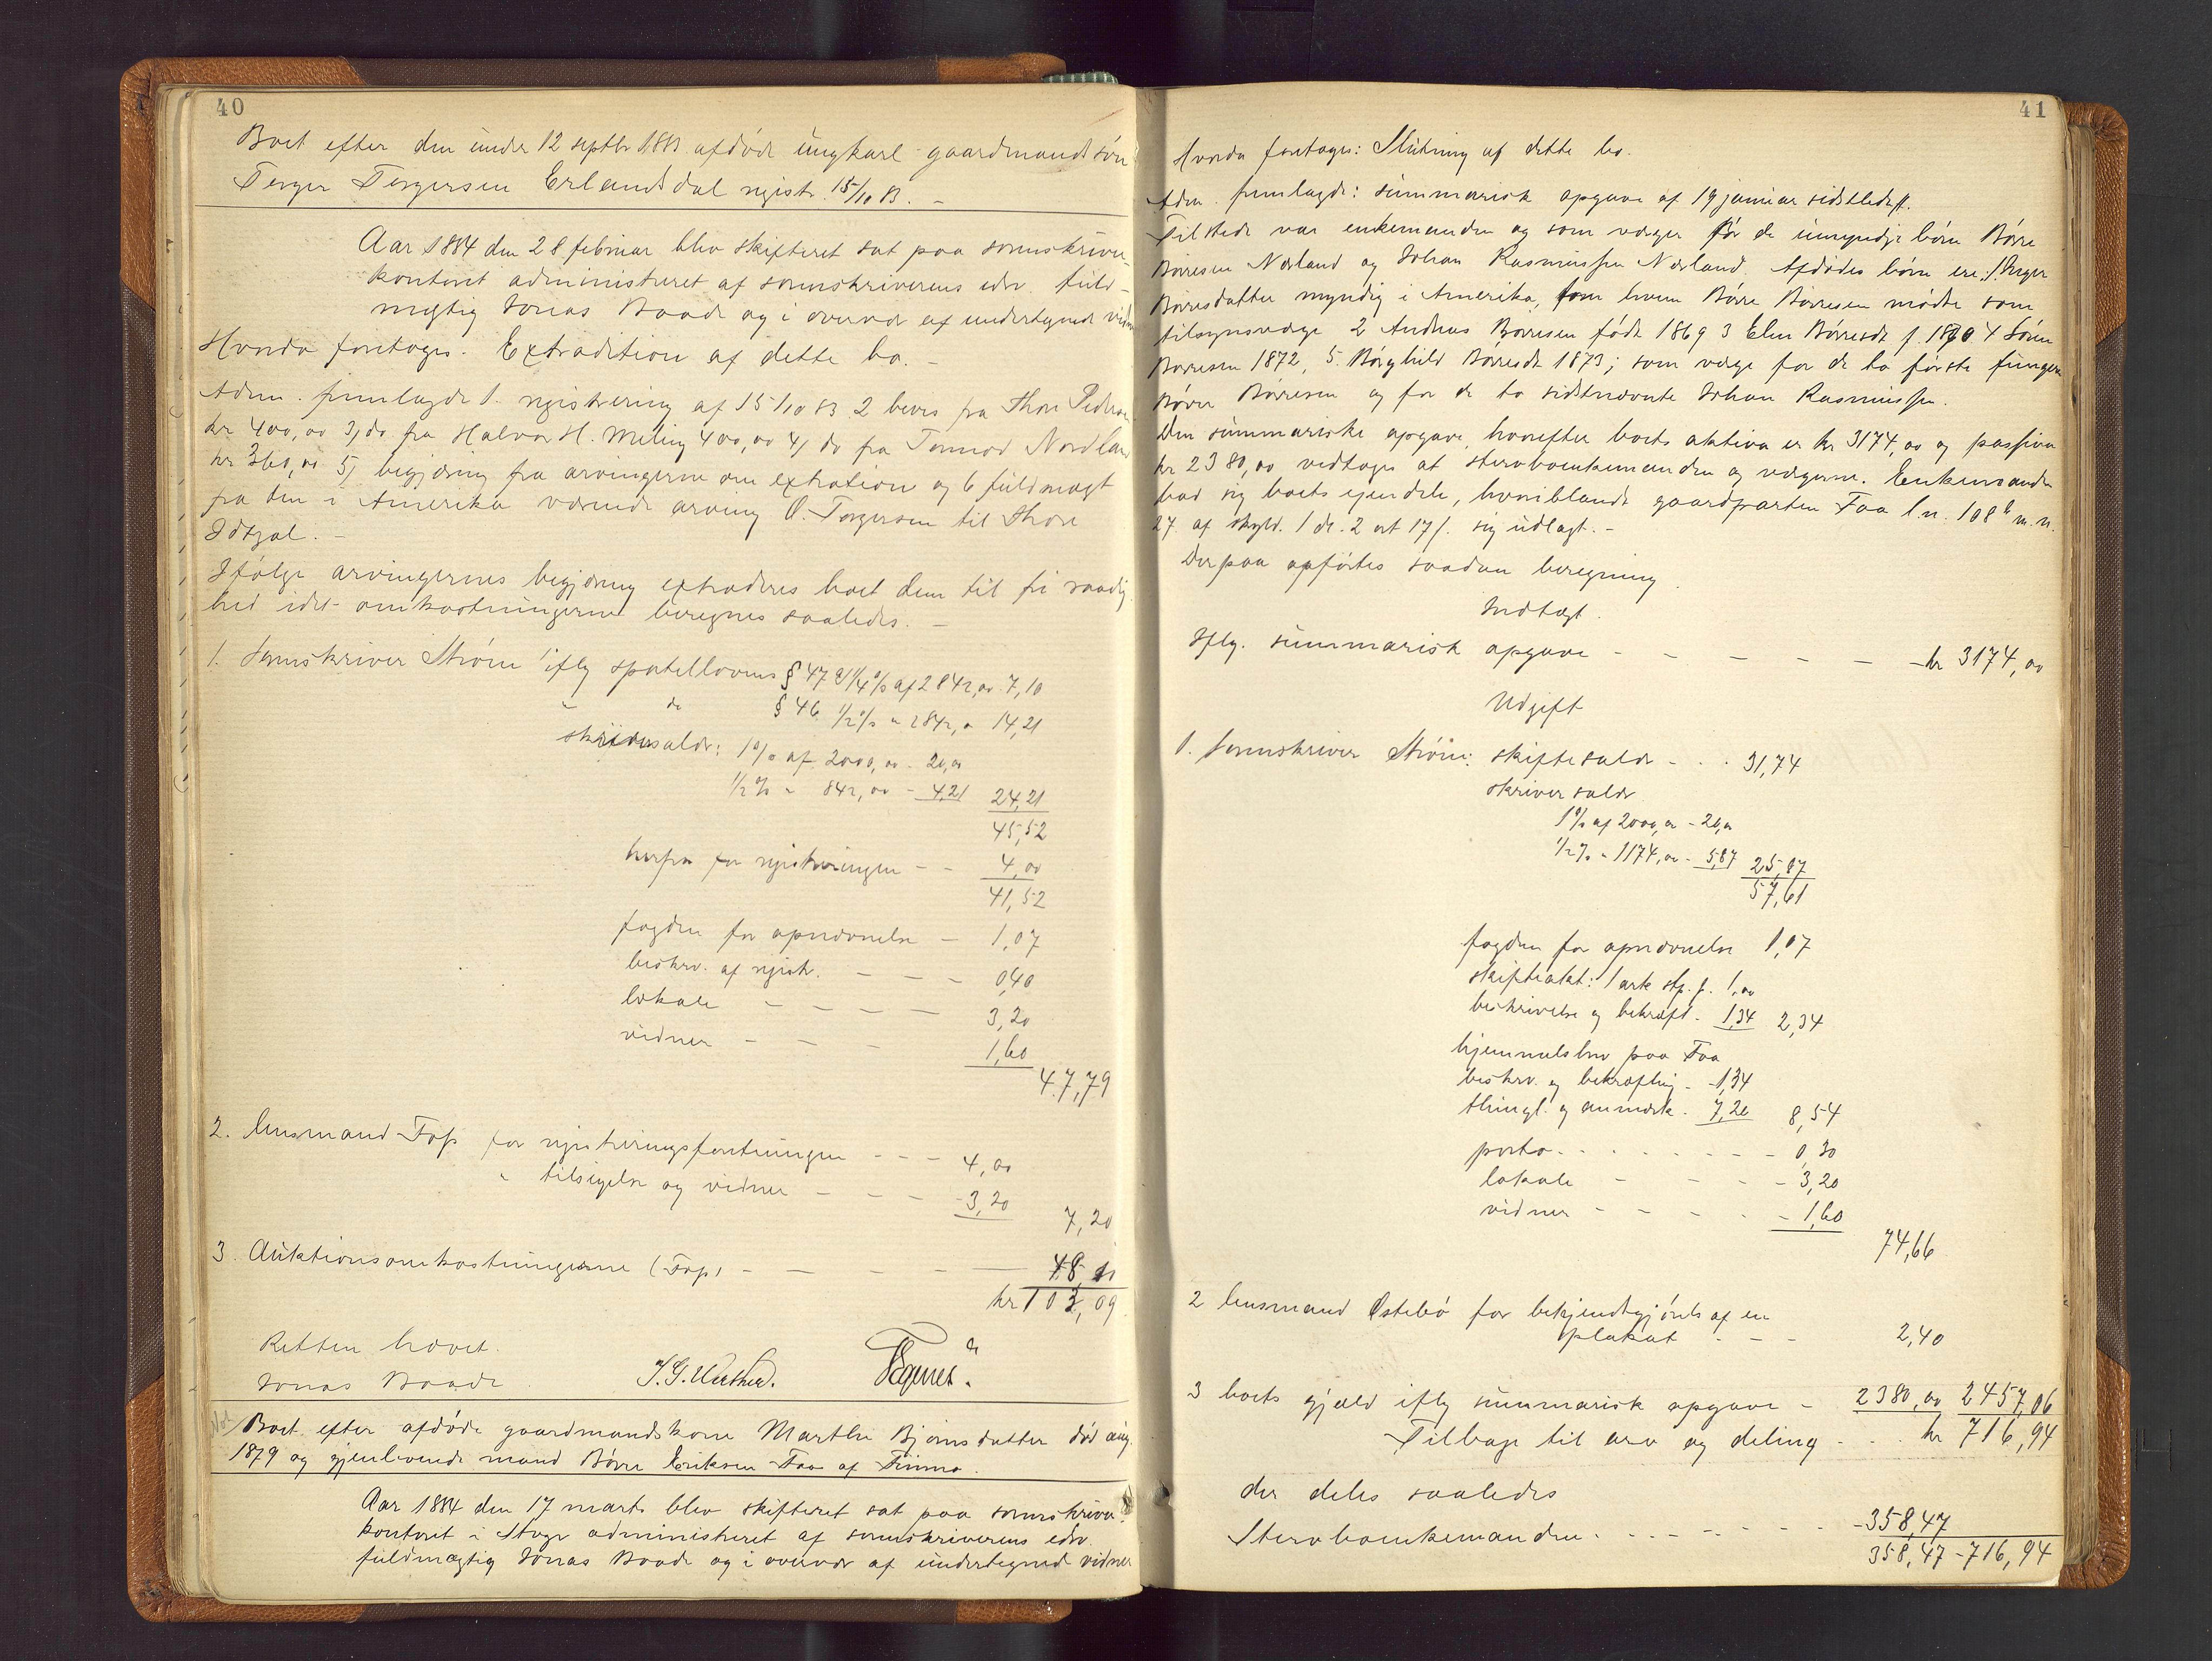 40
Boet efter den under 12 septbr 1883 afdøde ungkarl gaardmandssøn
Torger Torgersen Erlandsdal registr. 15/10 83. –
Aar 1884 den 28 februar blev skifteret sat paa sorenskriver-
kontoret administreret af sorenskriverens edsv. fuld-
mægtig Jonas Baade og i overvær af undertegnede vidner
Hvorda foretoges: Extradition af dette bo. –
Adm. fremlagde 1. registrering af 15/10 83 2 bevis fra Thore Pedersen
kr 400,00 3, do fra Halvor H. Meling 400,00 4, do fra Tormod Nordland
kr 360,00 5, begjæring fra arvingerne om extration og 6 fuldmagt
fra den i Amerika værende arving O. Torgersen til Thore
Idsal. –
Ifølge arvingernes begjæring extraderes boet dem til fri raadig-
hed idet omkostningerne beregnes saaledes. –
1. Sorenskriver Strøm iflg sportellovens § 47 1/4 % af 2842,00 7,10
" do § 46 1/2 % " 2842, " 14,21
skriversaldr: 1 % af 2000,00 - 20,00
1/2 % " 842,00 - 4,21 24,21
45,52
herfra for registreringen - - 4,00
41,52
fogden for opnævnelse - 1,07
beskrv. af registr. - - - 0,40
lokale - - - - 3,20
vidner - - - 1,60
47,79
2. lensmand Foss for registreringsforretningen - - - 4,00
" tilsigelse og vidner - - - 3,20
7,20
3. Auktionsomkostningerne (Foss) - - - - 48,
kr 103,09
Retten hævet.
Jonas Baade
Boet efter afdøde gaardmandskone Marthe Bjørnsdatter død aug.
1879 og gjenlevende mand Børre Eriksen Faa af Finnø.
Aar 1884 den 17 marts blev skifteret sat paa sorenskriver-
kontoret i administreret af sorenskriverens edsv.
fuldmægtig Jonas Baade og i overvær af undertegnede vidner
41
Hvorda foretoges: Slutning af dette bo.
Adm. fremlagde: summarisk opgave af 19 januar sidstleden.
Tilstede var enkemanden og som værger for de umyndige børn Børre
Børresen Nærland og Johan Rasmussen Nærland. Afdødes børn ere: 1 Inger
Børresdatter myndig i Amerika, for hvem Børre Børresen mødte som
tilsynsværge 2 Andreas Børresen født 1869 3 Elen Børresdt f. 1870 4 Søren
Børresen 1872, 5. Borghild Børresdt 1873; som værge for de to første fungerer
Børre Børresen og for de to sidstnævnte Johan Rasmussen.
Den summariske opgave, hvorefter boets aktiva er kr 3174,00 og passiva
kr 2380,00 vedtoges af stervboenkemanden og værgerne. Enkemanden
bad sig boets eiendele, hvoriblandt gaardparten Faa l.n. 108b m.n.
27 af skyld. 1 dr. 2 ort 17 s. sig udlagt. –
Derpaa opførtes saadan beregning.
Indtægt.
Iflg. summarisk opgave - - - - - - kr 3174,00
Udgift
1. Sorenskriver Strøm: skiftesaldr - . . 31,74
skriversaldr
1 % af 2000,00 - 20,00
1/2 % " 1174,00 - 5,87 25,87
57,61
fogden for opnævnelse 1,07
skifteakt: 1 ark stp. p. 1,00
beskrivelse og bekræft. - 1,34 2,34
hjemmelsbrev paa Faa
beskrv. og bekræftlig. - 1,34
thingl. og anmærk. 7,20 8,54
porto . . . . . . - 0,30
lokale - - - - 3,20
vidner - - - - 1,60
74,66
2 lensmand Østebø for bekjendtgjørelse af en
plakat - - - 2,40
3 boets gjæld iflg summarisk opgave - 2380,00 2457,06
Tilbage til arv og deling - . . kr 716,94
der deles saaledes
Stervboenkemanden . . - - - - - - 358,47
358,47 - 716,94